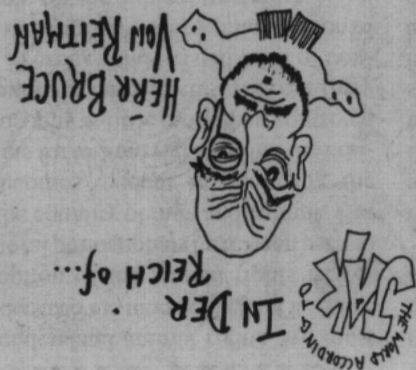 THE WORLD ACCORDING TO
IN DER
REICH of...
HERR BRUCE
VON REITMAN